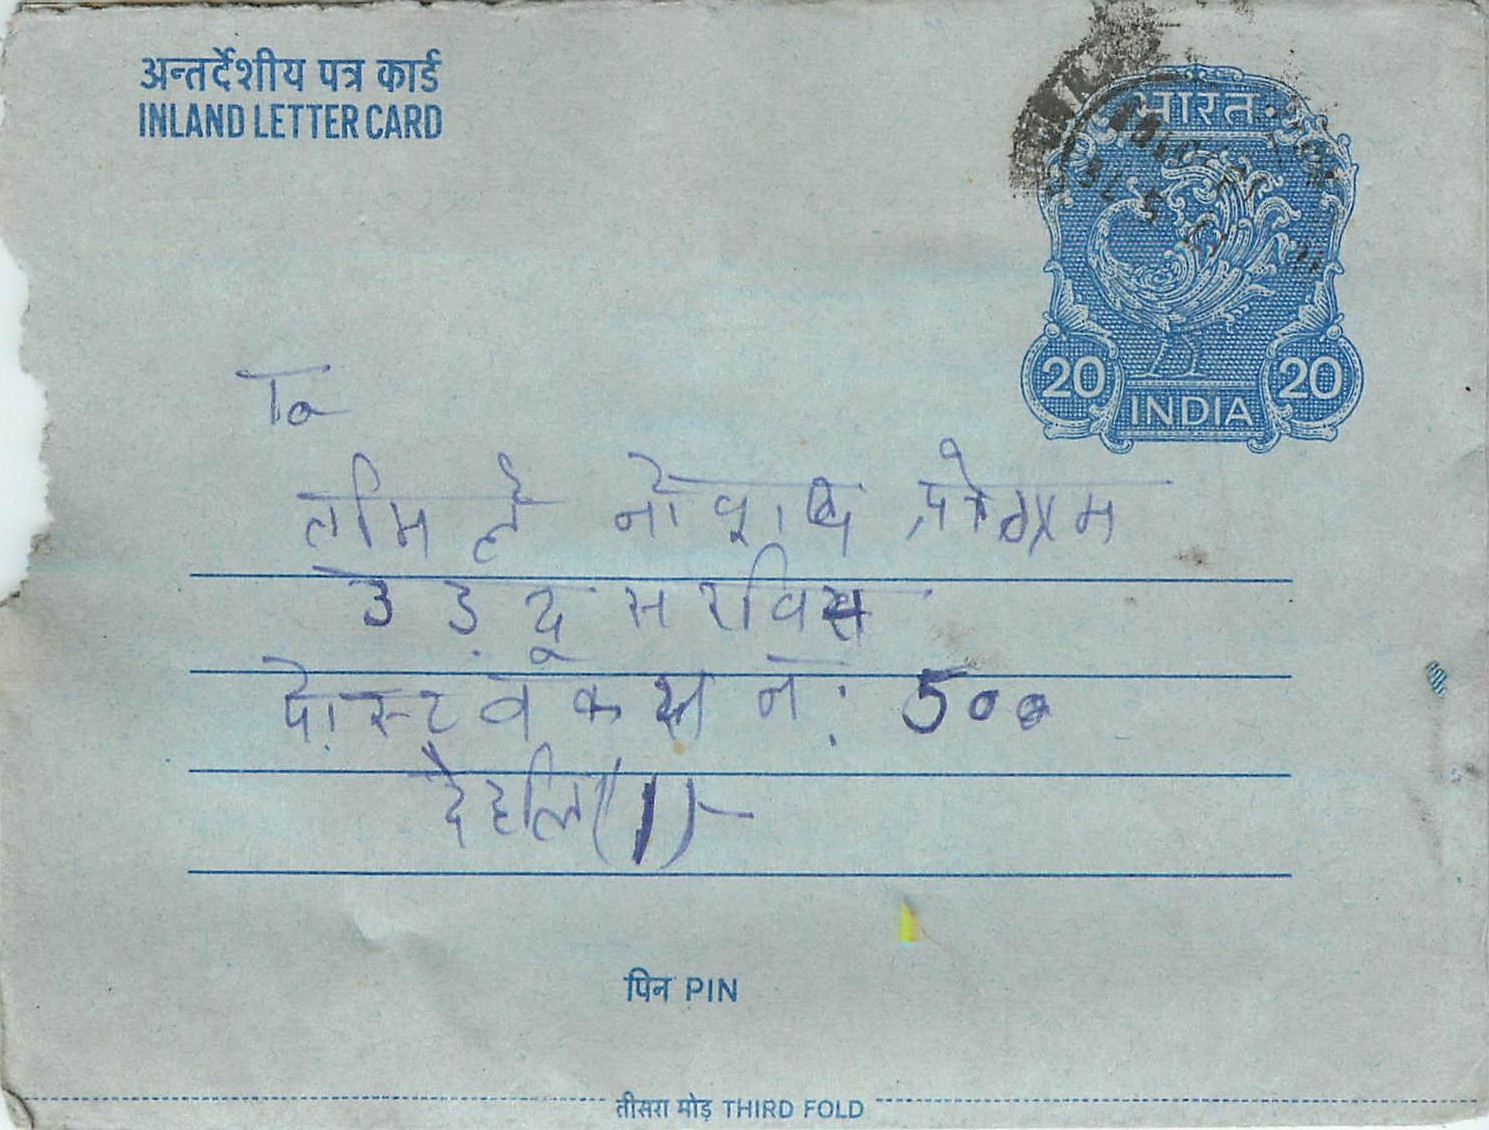 अन्तर्देशीय पत्र कार्ड
INLAND LETTER CARD
भारत
20 20
INDIA
To
प्रोग्राम
उड़दू सरविस
पोस्ट वकस नं: 500
देहलि (1)-
पिन PIN
तीसरा मोड़ THIRD FOLD